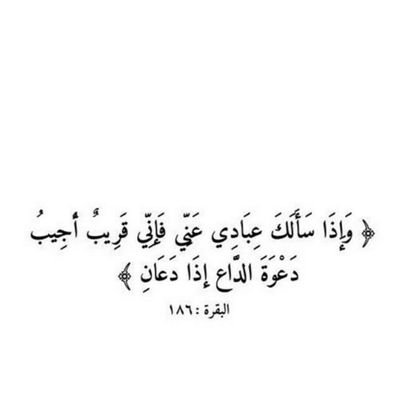 ﴿ وَإِذَا سَأَلَكَ عِبَادِي عَنِّي فَإِنِّي قَرِيبٌ أُجِيبُ
دَعْوَةَ الدَّاعِ إِذَا دَعَانِ ﴾
البقرة : ١٨٦